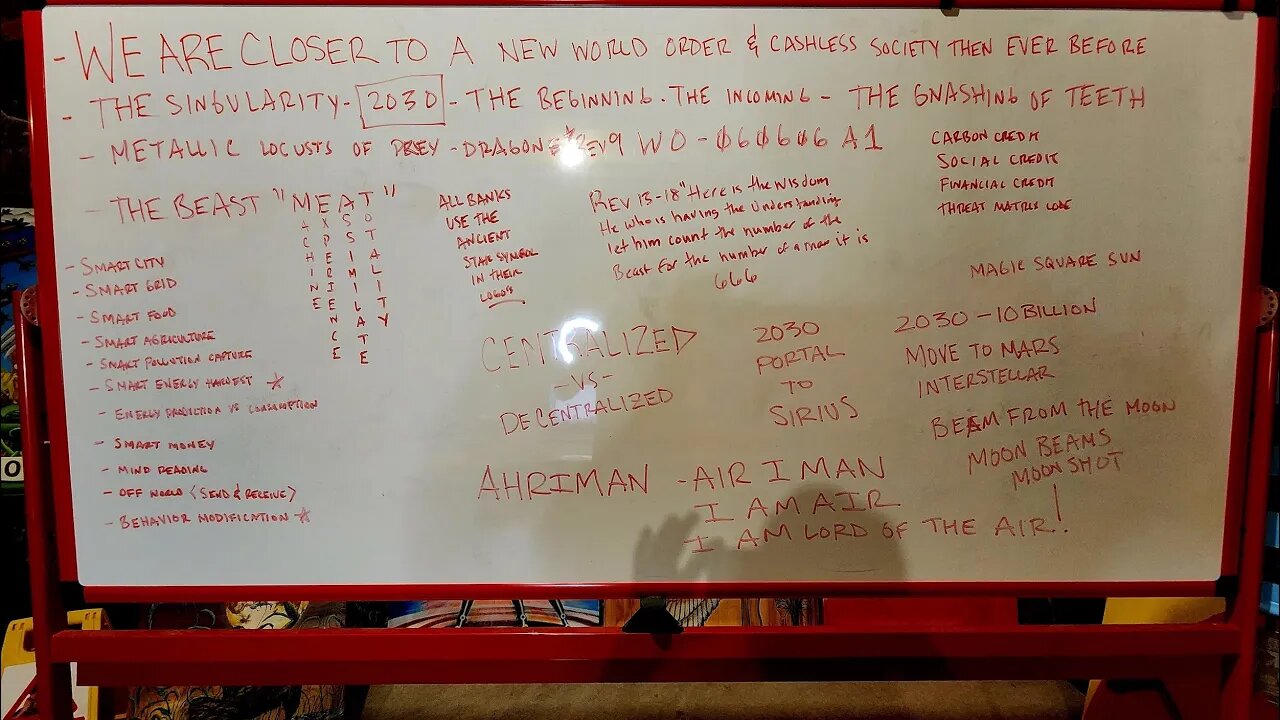 - WE ARE CLOSER TO A NEW WORLD ORDER & CASHLESS SOCIETY THEN EVER BEFORE
- THE SINGULARITY - 2030 - THE BEGINNING. THE INCOMING - THE GNASHING OF TEETH
- METALLIC LOCUSTS OF PREY - DRAGONS REV9 WO - 060606 A1
CARBON CREDIT
SOCIAL CREDIT
FINANCIAL CREDIT
THREAT MATRIX CODE
- THE BEAST "MEAT"
MACHINE
EXPERIENCE
ASSIMILATE
TOTALITY
ALL BANKS
USE THE
ANCIENT
STAR SYMBOL
IN THEIR
LOGOS
Rev 13-18 "Here is the wisdom
He who is having the understanding
let him count the number of the
Beast for the number of a man it is
666
MAGIC SQUARE SUN
- SMART CITY
- SMART GRID
- SMART FOOD
- SMART AGRICULTURE
- SMART POLLUTION CAPTURE
- SMART ENERGY HARVEST ☆
- ENERGY PRODICTION VS CONSUMPTION
- SMART MONEY
- MIND READING
- OFF WORLD <SEND & RECEIVE>
- BEHAVIOR MODIFICATION ☆
CENTRALIZED
- VS -
DECENTRALIZED
2030
PORTAL
TO
SIRIUS
2030 - 10 BILLION
MOVE TO MARS
INTERSTELLAR
BEAM FROM THE MOON
MOON BEAMS
MOON SHOT
AHRIMAN - AIR I MAN
I AM AIR
I AM LORD OF THE AIR!
O